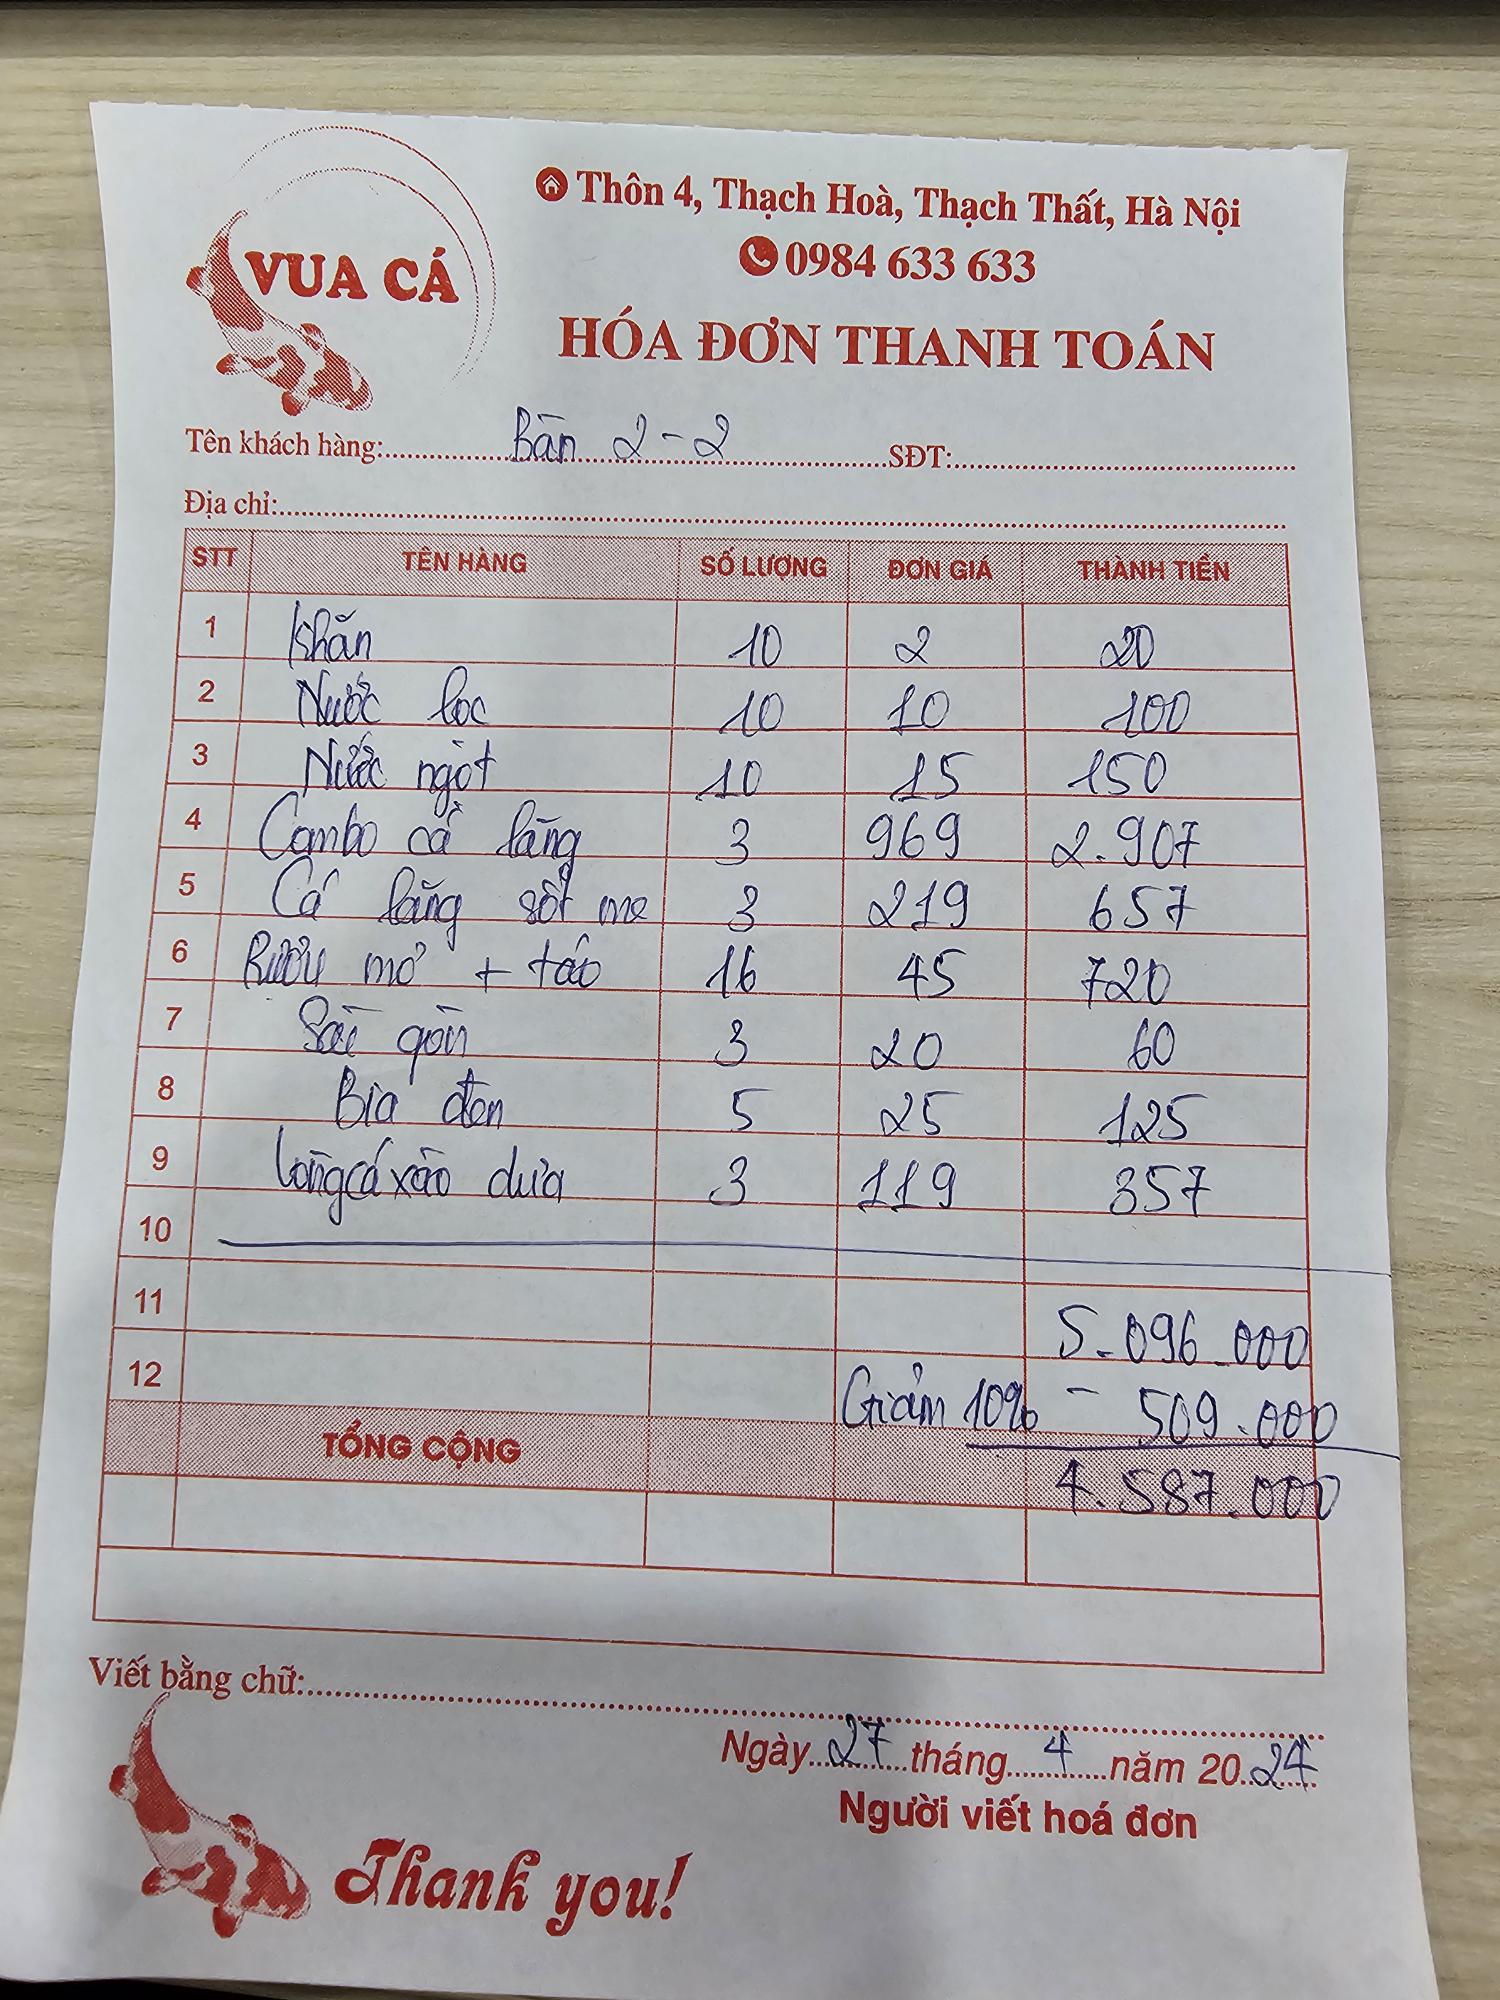 VUA CÁ
Thôn 4, Thạch Hoà, Thạch Thất, Hà Nội
0984 633 633
HÓA ĐƠN THANH TOÁN
Tên khách hàng: Bàn 2-2 SĐT:
Địa chỉ:
STT TÊN HÀNG SỐ LƯỢNG ĐƠN GIÁ THÀNH TIỀN
1 Khăn 10 2 20
2 Nước lọc 10 10 100
3 Nước ngọt 10 15 150
4 Combo cá lăng 3 969 2.907
5 Cá lăng sốt me 3 219 657
6 Rượu mơ + táo 16 45 720
7 Sài gòn 3 20 60
8 Bia đen 5 25 125
9 Lòng cá xào dưa 3 119 357
10
11 5.096.000
12 Giảm 10% - 509.000
TỔNG CỘNG 4.587.000
Viết bằng chữ:
Ngày 27 tháng 4 năm 2024
Người viết hoá đơn
Thank you!